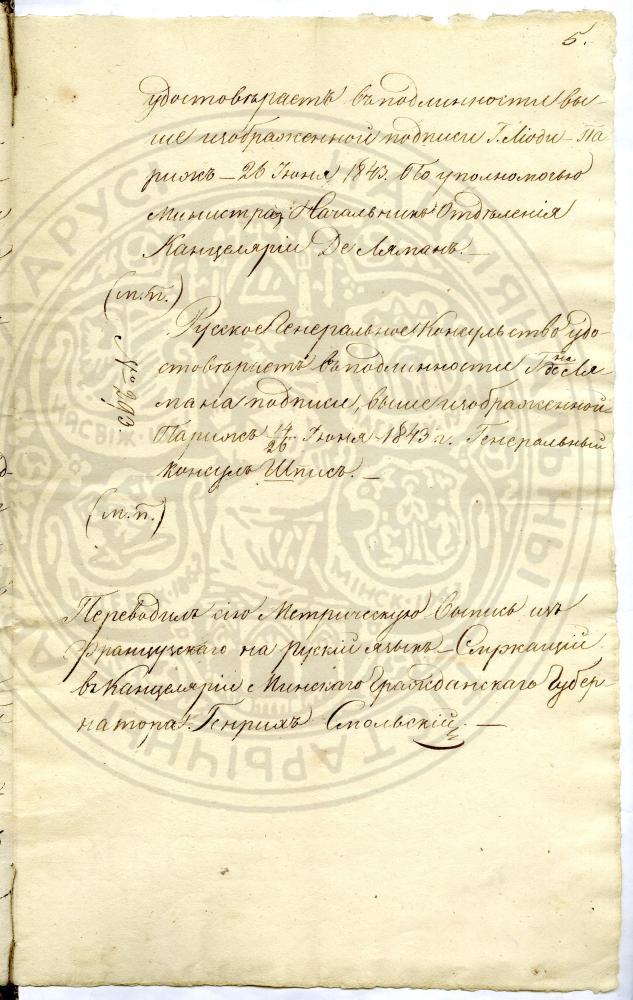 5.
удостовѣряетъ въ подлинности вы-
ше изображенной подписи Г. Люди – Па
рижъ – 26 Іюня 1843. По уполномочью
Министра, Начальникъ Отдѣленія
Канцеляріи Де Ляманъ. –
(м. п.)
Русское Генеральное Консульство удо-
стовѣряетъ въ подлинности Гна де Ля
мана подписи, выше изображенной
Парижъ 14/26 Іюня 1843 г. Генеральный
консулъ Шписъ. –
№ 293.
(м. п.)
Переводилъ сію Метрическую выпись изъ
Французскаго на Рускій языкъ – Служащій
въ Канцеляріи Минскаго Гражданскаго Губер-
натора Генрихъ Смольскій. –